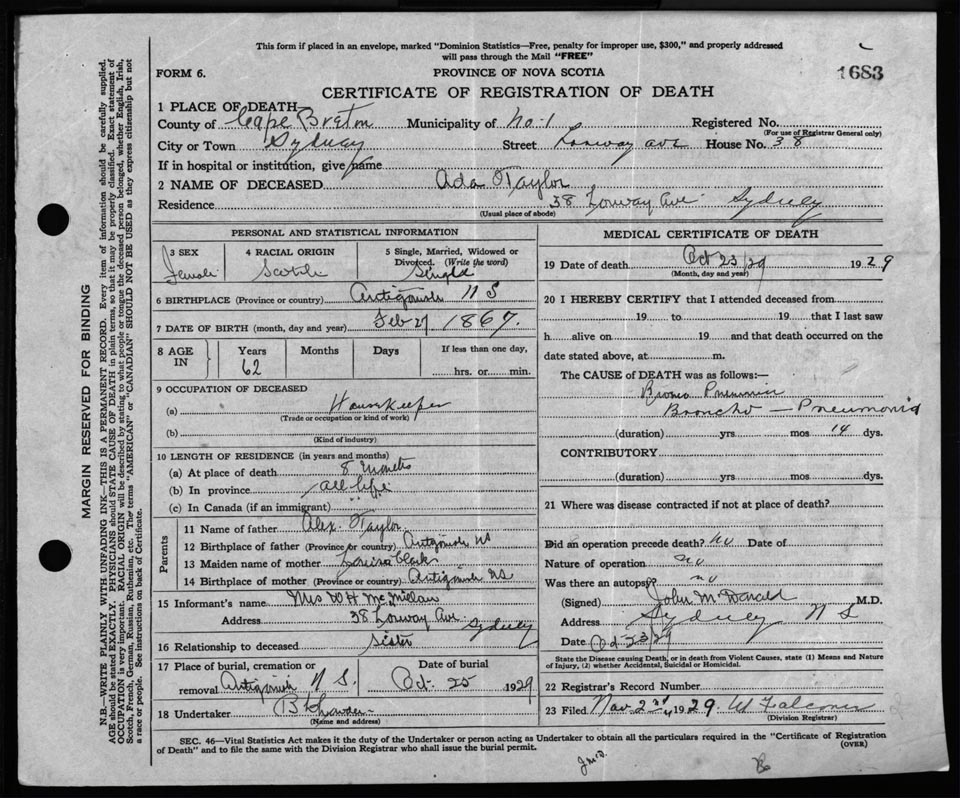 This form if placed in an envelope, marked "Dominion Statistics—Free, penalty for improper use, $300," and properly addressed
will pass through the Mail "FREE"
FORM 6.
PROVINCE OF NOVA SCOTIA
1683
CERTIFICATE OF REGISTRATION OF DEATH
1 PLACE OF DEATH
County of Cape Breton Municipality of No. 1 Registered No.
(For use of Registrar General only)
City or Town Sydney Street Lorway Ave House No. 38
If in hospital or institution, give name
2 NAME OF DECEASED Ada Taylor
Residence 38 Lorway Ave Sydney
(Usual place of abode)
PERSONAL AND STATISTICAL INFORMATION
3 SEX Female
4 RACIAL ORIGIN Scotch
5 Single, Married, Widowed or
Divorced. (Write the word)
Single
6 BIRTHPLACE (Province or country) Antigonish N S
7 DATE OF BIRTH (month, day and year) Feb 27 1867.
8 AGE IN Years 62 Months Days If less than one day, hrs. or min.
9 OCCUPATION OF DECEASED
(a) Housekeeper
(Trade or occupation or kind of work)
(b)
(Kind of industry)
10 LENGTH OF RESIDENCE (in years and months)
(a) At place of death 8 months
(b) In province all life
(c) In Canada (if an immigrant)
Parents
11 Name of father Alex. Taylor
12 Birthplace of father (Province or country) Antigonish NS
13 Maiden name of mother Louisa Clark
14 Birthplace of mother (Province or country) Antigonish NS
15 Informant's name Mrs W H McMillan
Address 38 Lorway Ave Sydney
16 Relationship to deceased Sister
17 Place of burial, cremation or
removal Antigonish N S.
Date of burial
Oct. 25 1929
18 Undertaker
(Name and address)
MEDICAL CERTIFICATE OF DEATH
19 Date of death Oct 23/29 1929
(Month, day and year)
20 I HEREBY CERTIFY that I attended deceased from
19 to 19 that I last saw
h alive on 19 and that death occurred on the
date stated above, at m.
The CAUSE OF DEATH was as follows:—
Broncho — Pneumonia
(duration) yrs mos 14 dys.
CONTRIBUTORY
(duration) yrs mos dys.
21 Where was disease contracted if not at place of death?
Did an operation precede death? No Date of
Nature of operation no
Was there an autopsy? no
(Signed) John McDonald M.D.
Address Sydney N S
Date Oct 23/29
State the Disease causing Death, or in death from Violent Causes, state (1) Means and Nature
of Injury, (2) whether Accidental, Suicidal or Homicidal.
22 Registrar's Record Number
23 Filed Nov. 2nd 1929 W Falconer
(Division Registrar)
SEC. 46—Vital Statistics Act makes it the duty of the Undertaker or person acting as Undertaker to obtain all the particulars required in the "Certificate of Registration
of Death" and to file the same with the Division Registrar who shall issue the burial permit.
(OVER)
MARGIN RESERVED FOR BINDING
N.B.—WRITE PLAINLY WITH UNFADING INK—THIS IS A PERMANENT RECORD. Every item of information should be carefully supplied.
AGE should be stated EXACTLY. PHYSICIANS should STATE CAUSE OF DEATH in plain terms, so that it may be properly classified. Exact statement of
OCCUPATION is very important. RACIAL ORIGIN will be described by stating to what people or tongue the deceased person belonged, whether English, Irish,
Scotch, French, German, Russian, Ruthenian, etc. The terms "AMERICAN" or "CANADIAN" SHOULD NOT BE USED as they express citizenship but not
a race or people. See instructions on back of Certificate.